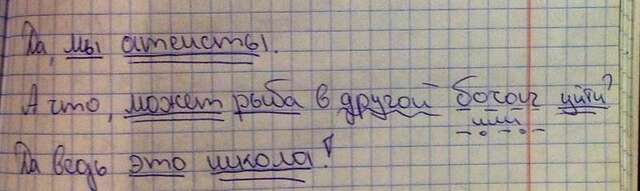 Да, мы атеисты.
А что, может рыба в другой босоиг уйти?
или
Да ведь это школа!